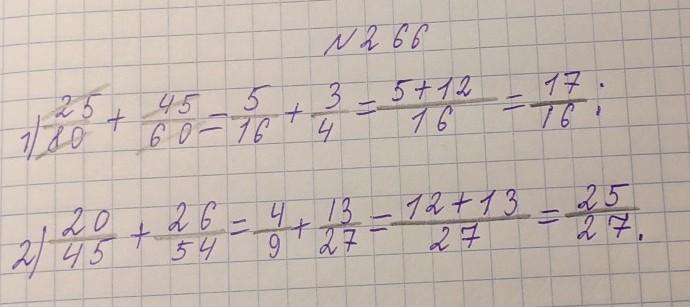 N 266
1) 25/80 + 45/60 = 5/16 + 3/4 = 5+12/16 = 17/16;
2) 20/45 + 26/54 = 4/9 + 13/27 = 12+13/27 = 25/27.